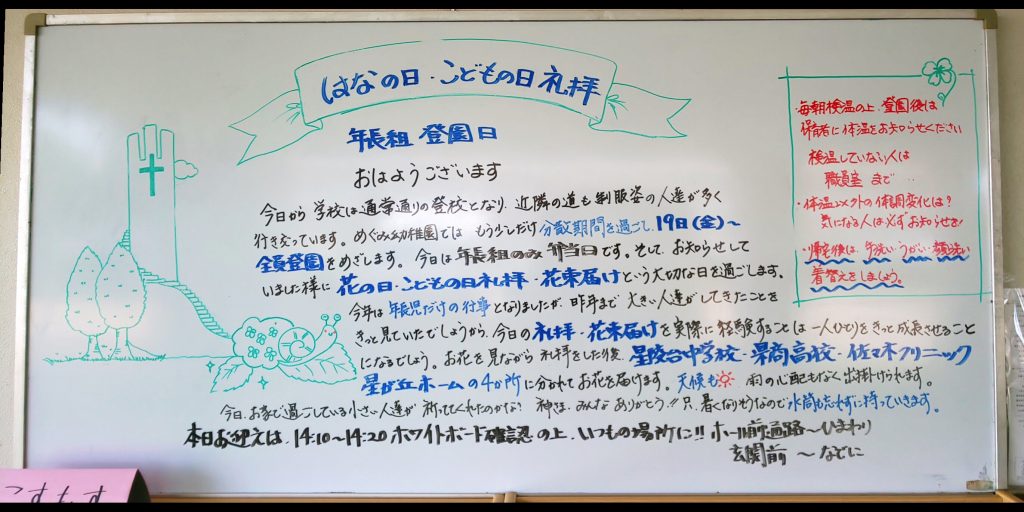 はなの日・こどもの日礼拝
年長組 登園日
おはようございます
今日から学校は通常通りの登校となり、近隣の道も制服姿の人達が多く
行き交っています。めぐみ幼稚園では もう少しだけ分散期間を過ごし、19日(金)〜
全員登園をめざします。今日は年長組のみ弁当日です。そして、お知らせして
いました様に花の日・こどもの日礼拝・花束届けという大切な日を過ごします。
今年は年長児だけの行事となりましたが、昨年まで大きい人達がしてきたことを
きっと見ていたでしょうから、今日の礼拝・花束届けを実際に経験することは一人ひとりをきっと成長させること
になるでしょう。お花を見ながら礼拝をした後、星陵台中学校・県商高校・佐々木クリニック
星が丘ホームの4か所に分かれてお花を届けます。天候も 雨の心配もなく出掛けられます。
今日、お家で過ごしている小さい人達が祈ってくれたのかな? 神さま、みんなありがとう!! 只、暑くなりそうなので水筒も忘れずに持っていきます。
本日お迎えは、14:10〜14:20 ホワイトボード確認の上、いつもの場所に!! ホール前通路〜ひまわり
玄関前 〜なでしこ
・毎朝検温の上、登園後は
保育者に体温をお知らせください
検温していない人は
職員室まで…
・体温以外の体調変化は?
気になる人は必ずお知らせを!
・帰宅後は、手洗い・うがい・顔洗い
着替えをしましょう。
こすもす